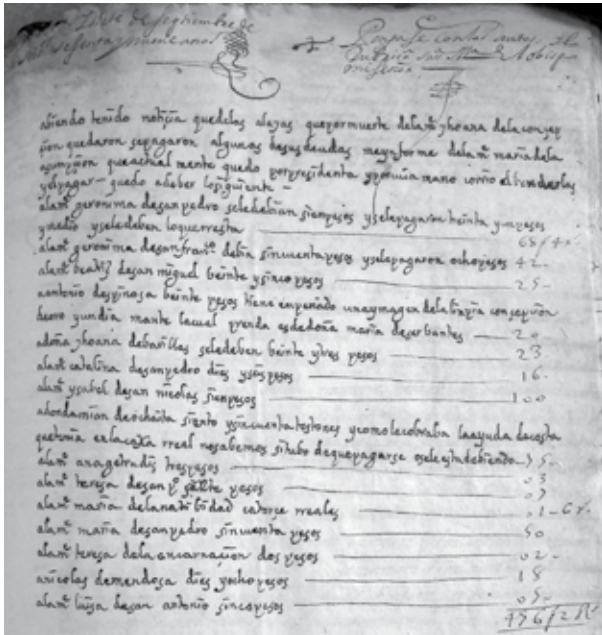 siete de septiembre de
sesenta y nueve años
Pongase con los autos
abiendo tenido notiçia que de las alajas que por muerte de la me jhoana de la conçep
çion quedaron se pagaron algunas de sus deudas me ynforme de la me maria de la
asumpçion que actual mente quedo por presidenta y por cuia mano corrio el benderlas
y el pagar quedo a deber lo siguiente
a la me geronima de san pedro se le debian sien pesos y se le pagaron treinta y un pesos
y medio y se le deben lo que rresta 68/4
a la me geronima de san franco debia sincuenta pesos y se le pagaron ocho pesos 42
a la me beatriz de san miguel beinte y sinco pesos 25
a antonio despinosa beinte pesos tiene enpeñado una ymagen de la linpia consepsion
y un diamante la cual prenda es de doña maria de serbantes 20
a doña jhoana de barillas se le deben beinte y tres pesos 23
a la me catalina de san pedro dies y seis pesos 16
a la me ysabel de san nicolas sien pesos 100
a don damian de ochaita siento y sincuenta tostones y como le cobraba la ayuda de costa
que tenia en la caxa rreal no sabemos si tubo de que pagarse o se le esta debiendo 75
a la me ana getrudis tres pesos 03
a la me teresa de san po siete pesos 07
a la me maria de la natibidad catorse rreales 01-6
a la me maria de san pedro sincuenta pesos 50
a la me teresa de la encarnaçion dos pesos 02
a nicolas de mendosa dies y ocho pesos 18
a la me luisa de san antonio sinco pesos 05
456/2 R